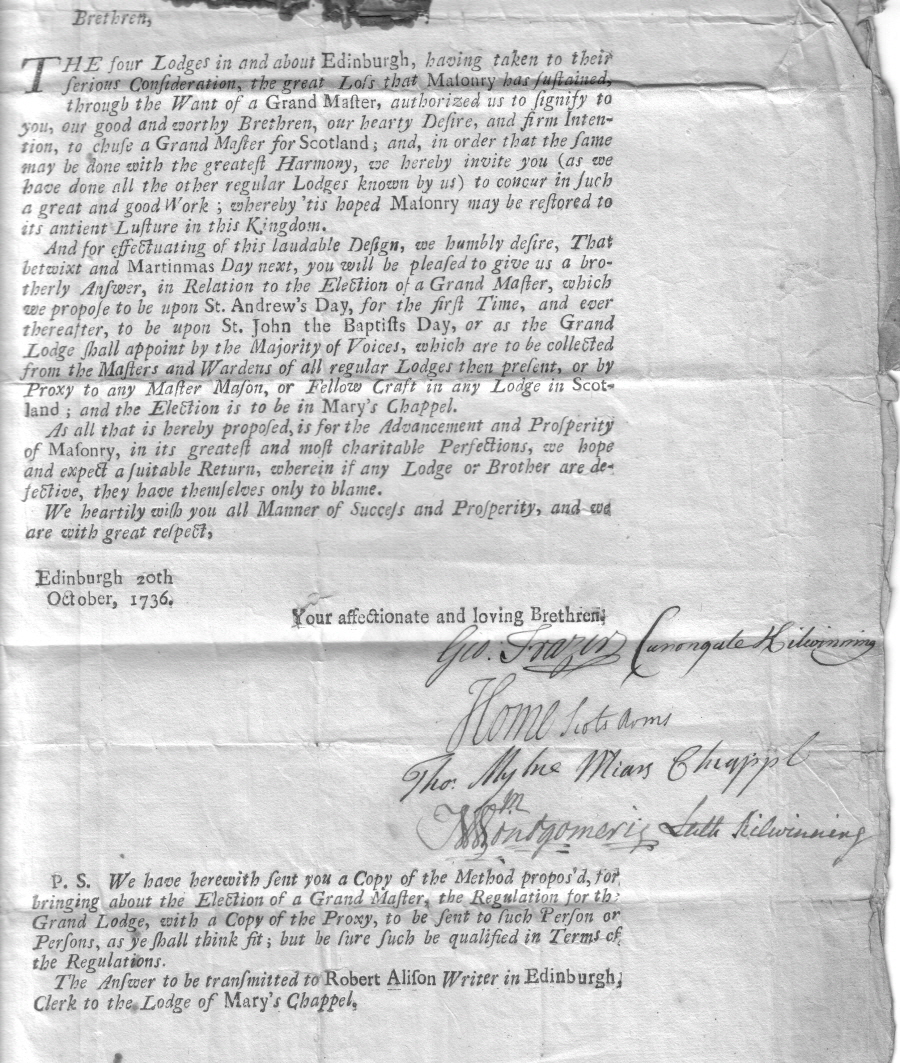 Brethren,
THE four Lodges in and about Edinburgh, having taken to their
ſerious Conſideration, the great Loſs that Maſonry has ſuſtained,
through the Want of a Grand Maſter, authorized us to ſignify to
you, our good and worthy Brethren, our hearty Deſire, and firm Inten-
tion, to chuſe a Grand Maſter for Scotland; and, in order that the ſame
may be done with the greateſt Harmony, we hereby invite you (as we
have done all the other regular Lodges known by us) to concur in ſuch
a great and good Work; whereby 'tis hoped Maſonry may be reſtored to
its antient Luſture in this Kingdom.
And for effectuating of this laudable Deſign, we humbly deſire, That
betwixt and Martinmas Day next, you will be pleaſed to give us a bro-
therly Anſwer, in Relation to the Election of a Grand Maſter, which
we propoſe to be upon St. Andrew's Day, for the firſt Time, and ever
thereafter, to be upon St. John the Baptiſts Day, or as the Grand
Lodge ſhall appoint by the Majority of Voices, which are to be collected
from the Maſters and Wardens of all regular Lodges then preſent, or by
Proxy to any Maſter Maſon, or Fellow Craft in any Lodge in Scot-
land; and the Election is to be in Mary's Chappel.
As all that is hereby propoſed, is for the Advancement and Proſperity
of Maſonry, in its greateſt and moſt charitable Perfections, we hope
and expect a ſuitable Return, wherein if any Lodge or Brother are de-
fective, they have themſelves only to blame.
We heartily wiſh you all Manner of Succeſs and Proſperity, and we
are with great reſpect,
Edinburgh 20th
October, 1736.
Your affectionate and loving Brethren,
Geo: Frazer Canongate Kilwinning
Home Scots Arms
Tho: Mylne Mians Chappl
Montgomerie Leith Kilwinning
P. S. We have herewith ſent you a Copy of the Method propos'd, for
bringing about the Election of a Grand Maſter, the Regulation for the
Grand Lodge, with a Copy of the Proxy, to be ſent to ſuch Perſon or
Perſons, as ye ſhall think fit; but be ſure ſuch be qualified in Terms of
the Regulations.
The Anſwer to be tranſmitted to Robert Aliſon Writer in Edinburgh,
Clerk to the Lodge of Mary's Chappel,